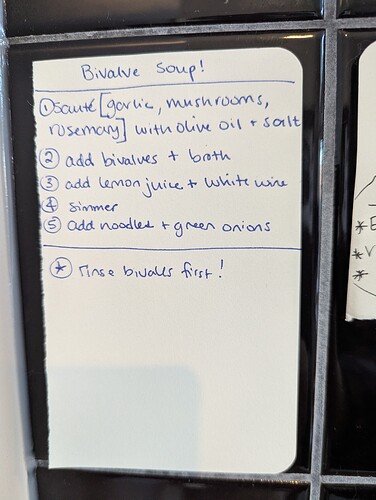 Bivalve Soup!
① Sauté [garlic, mushrooms,
rosemary] with olive oil + salt
② add bivalves + broth
③ add lemon juice + white wine
④ Simmer
⑤ add noodles + green onions
* rinse bivalves first!
* E
* V
*